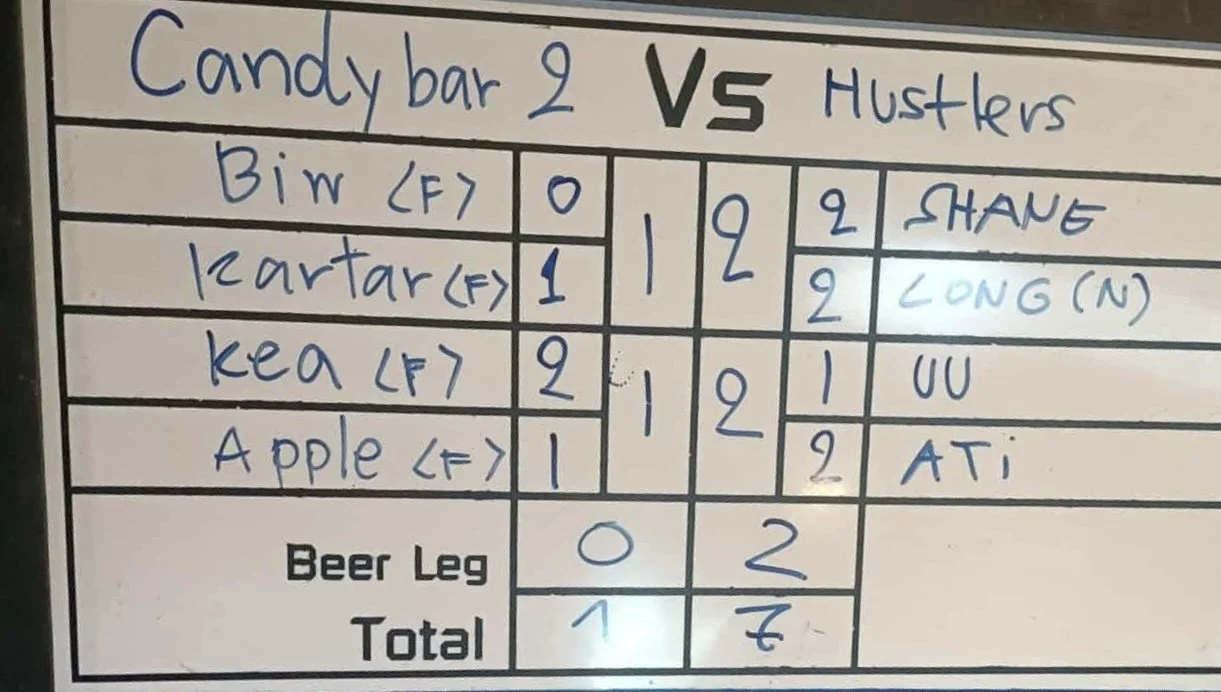 Candy bar 2 Vs Hustlers
Bim <F> 0 1 2 2 SHANE
Kartar <F> 1 2 LONG (N)
kea <F> 2 1 2 1 UU
Apple <F> 1 2 ATi
Beer Leg 0 2
Total 1 7